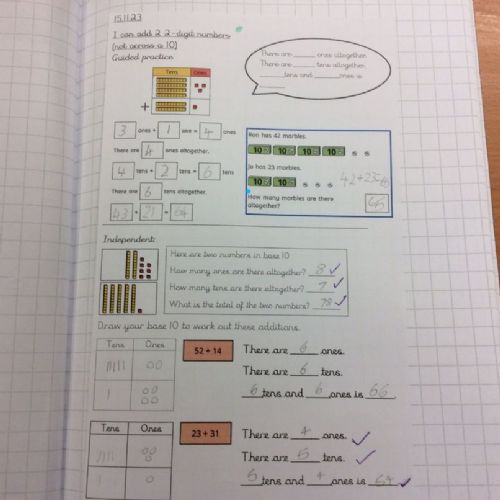 15.11.23
I can add 2 2-digit numbers
(not across a 10)
Guided practice
There are ___ ones altogether.
There are ___ tens altogether.
___ tens and ___ ones is
___
Tens Ones
+
3 ones + 1 one = 4 ones
There are 4 ones altogether.
4 tens + 2 tens = 6 tens
There are 6 tens altogether.
43 + 21 = 64
Ron has 42 marbles.
10 10 10 10
Jo has 23 marbles.
10 10
42+23=
How many marbles are there
altogether?
65
Independent:
Here are two numbers in base 10
How many ones are there altogether? 8 ✓
How many tens are there altogether? 7 ✓
What is the total of the two numbers? 78 ✓
Draw your base 10 to work out these additions.
Tens Ones
52 + 14
There are 6 ones.
There are 6 tens.
6 tens and 6 ones is 66
Tens Ones
23 + 31
There are 4 ones. ✓
There are 5 tens. ✓
5 tens and 4 ones is 54 ✓